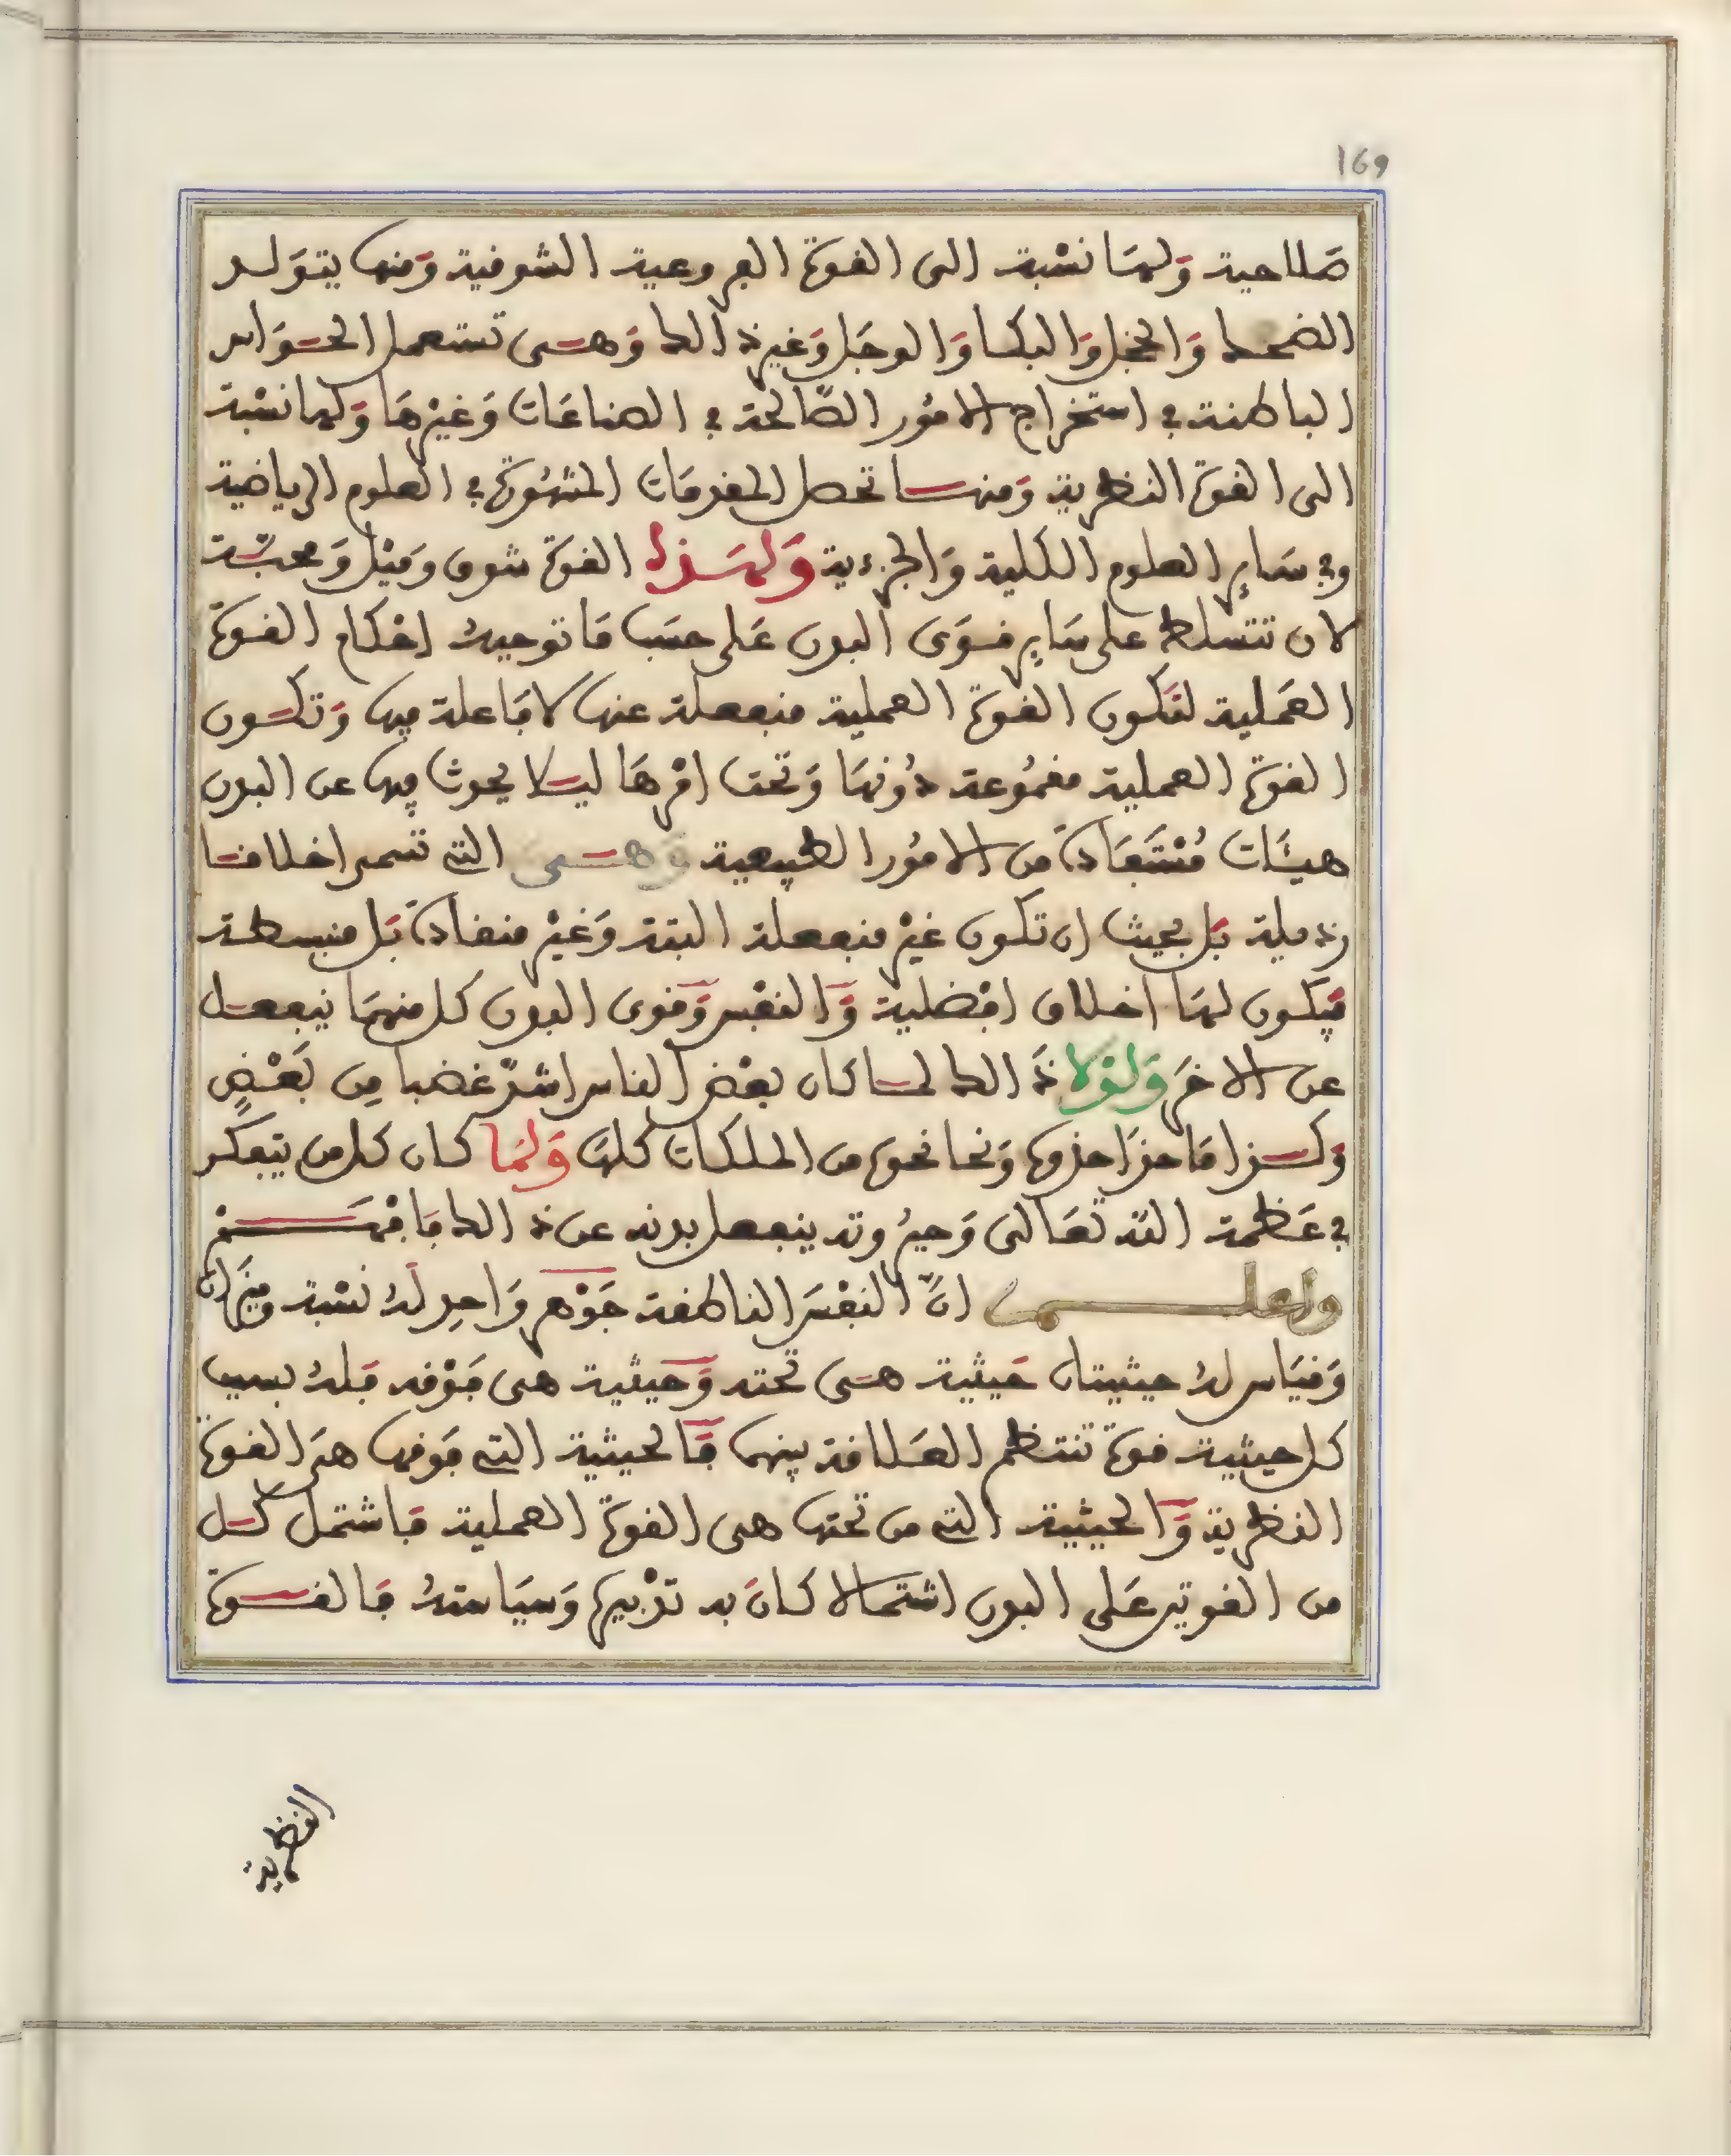 169
صلاحية ولها نسبة الى القوة الفروعية الشوقية ومنها يتولد
الضحك والخجل والبكا والوجل وغير ذالك وهى تستعمل الحواس
الباطنة في استخراج الامور الصالحة في الصناعات وغيرها ولها نسبة
الى القوة النظرية ومنها تحصل المقدمات المشهورة في العلوم الرياضية
وفي ساير العلوم الكلية والجزءية ولهذه القوة شوق وميل ومحبة
لان تتسلط على ساير قوى البدن على حسب ما توجبه احكام القوة
العملية لتكون القوة العملية منفعلة عنها لا فاعلة فيها وتكون
القوة العملية مقموعة دونها وتحت امرها ليلا يحدث فيها عن البدن
هيئات مستفادة من الامور الطبيعية وهى التي تسمى اخلاقا
رذيلة بل بحيث ان تكون غير منفعلة البتة وغير منقادة بل منبسطة
فيكون لها اخلاق افضلية والنفس وقوى البدن كل منهما ينفعل
عن الاخر ولولا ذالك لما كان بعض الناس اشد غضبا من بعض
وكذا ما حذا حذوها ونحا نحوه من الملكات كلها ولما كان كل من يتفكر
في عظمة الله تعالى وجبروته ينفعل بدنه عن ذالك فافهم
واعلم ان النفس الناطقة جوهر واحد له نسبة وميزان
وقياس له حيثيتان حيثية هى تحته وحيثية هى فوقه فله بسبب
كل حيثية قوة تنتظم العلاقة بينهما فالحيثية التي فوقها هي القوة
النظرية والحيثية التي من تحتها هى القوة العملية فاشتمل كل
من القوتين على البدن اشتمالا كان به تدبيرها وسياسته فالقوة
النظرية